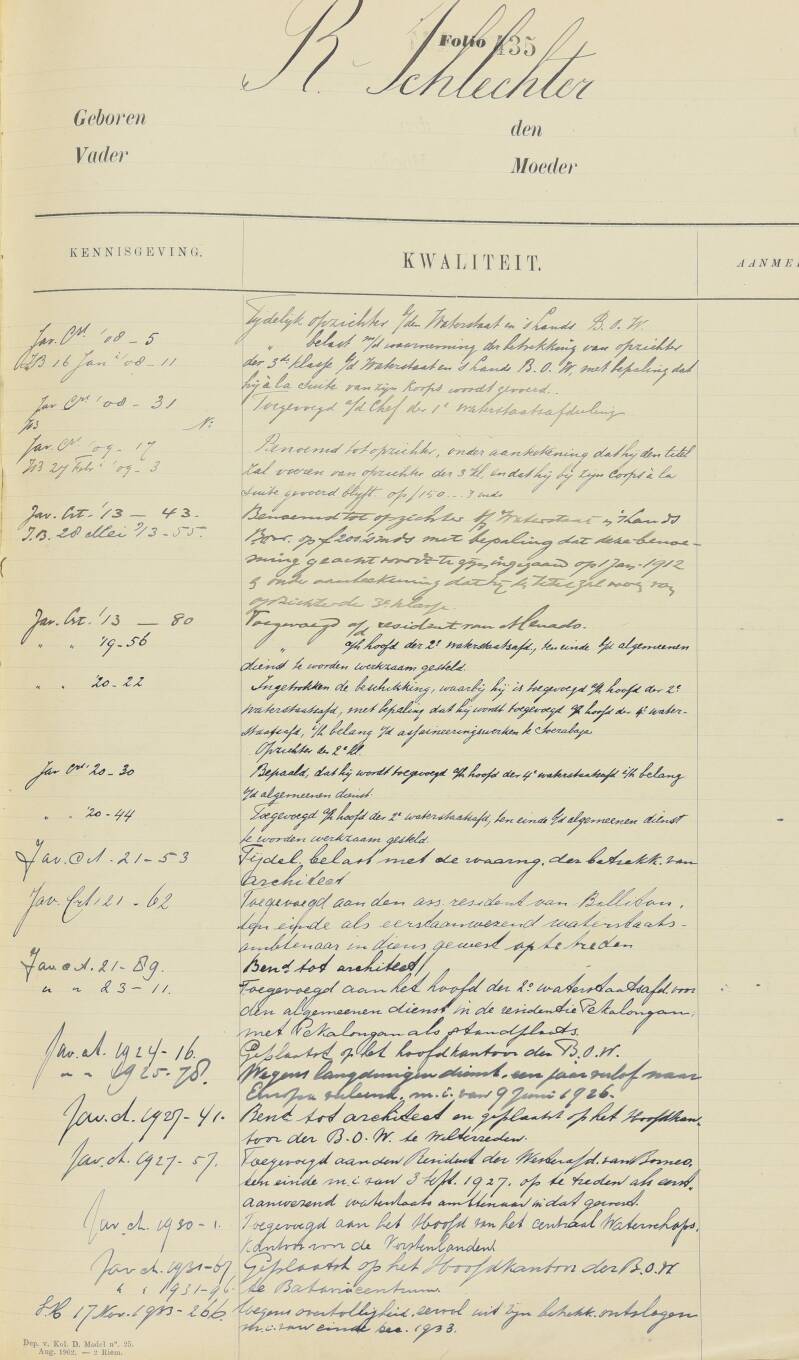 Folio 135
R. Schlechter
Geboren
den
Vader
Moeder
KENNISGEVING.
KWALITEIT.
AANME
Jav. Crt '08 - 5
Tijdelyk opzichter b/den Waterstaat en 's Lands B.O.W.
" belast m/d waarneming der betrekking van opzichter
I.B 16 Jan '08 - 11
der 3de klasse b/d Waterstaat en 's Lands B.O.W, met bepaling dat
hij à la suite van zijn Korps wordt gevoerd.
Jav Crt '08 - 31
Toegevoegd a/d Chef der 1e Waterstaatsafdeeling
No
Jav. Crt '09 - 17
Benoemd tot opzichter, onder aanteekening dat hy den titel
27 Febr '09 - 3
zal voeren van opzichter der 3e kl. en dat hy by zyn Corps à la
suite gevoerd blyft. op f150
Jav. Crt. '13 - 43.
Benoemd tot opzichter b/d Waterstaat en 's Lands
I.B. 28 Mei '13 - 55.
Bow. op f 200 's mds met bepaling dat deze benoe-
ming geacht wordt te zijn ingegaan op 1 Jan. 1912
& onder aanteekening dat hij de titel zal voeren van
opzichter der 3e klasse.
Jav. Crt. '13 - 80
Toegevoegd a/d resident van Menado.
" " '19-56
" a/h hoofd der 2e waterstaatsafd., ten einde b/d algemeenen
dienst te worden werkzaam gesteld.
" " '20-22
Ingetrokken de beschikking, waarbij hij is toegevoegd a/h hoofd der 2e
waterstaatsafd, met bepaling dat hij wordt toegevoegd a/h hoofd der 4e water-
staatsafd, i/h belang v/d assaineeringswerken te Soerabaja
Opzichter der 2e kl.
Jav Crt '20-30
Bepaald, dat hij wordt toegevoegd a/h hoofd der 4e waterstaatsafd i/h belang
v/d algemeenen dienst
" " '20-44
Toegevoegd a/h hoofd der 2e waterstaatsafd, ten einde b/d algemeenen dienst
te worden werkzaam gesteld.
Jav. Crt. 21-53
Tijdel. belast met de waarng. der betrekk. van
architect
Jav. Crt 21 - 62
Toegevoegd aan den ass. resident van Billiton,
ten einde als eerstaanwezend waterstaats-
ambtenaar in diens gewest op te treden
Jav. ct. 21-89.
Bend tot architect
" " 23-11.
Toegevoegd aan het hoofd der 2e waterstaatsafd. voor
den algemeenen dienst in de residentie Pekalongan,
met Pekalongan als standplaats.
Jav. ct. 1924-16.
Geplaatst op het hoofdkantoor der B.O.W.
" " 1925-78.
Wegens langdurigen dienst een jaar verlof naar
Europa verleend m.i. van 9 Juni 1926.
Jav. ct. 1927-41.
Bend tot architect en geplaatst op het Hoofdkan-
toor der B.O.W. te Weltevreden.
Jav. ct. 1927-57.
Toegevoegd aan den Resident der Westerafd. van Borneo,
ten einde m.i. van 3 Sept. 1927. op te treden als eerst-
aanwezend waterstaats ambtenaar in dat gewest.
Jav. ct. 1930-1.
Toegevoegd aan het Hoofd van het centraal Waterschaps-
kantoor voor de Vorstenlanden
Jav. ct. 1931-67
Geplaatst op het Hoofdkantoor der B.O.W
" " 1931-96
te Bataviacentrum.
17 Nov. 1933-266
Wegens overtolligheid eervol uit zijn betrekk. ontslagen
m.i. van einde Dec. 1933.
Dep. v. Kol. D. Model no. 25.
Aug. 1902. — 2 Riem.